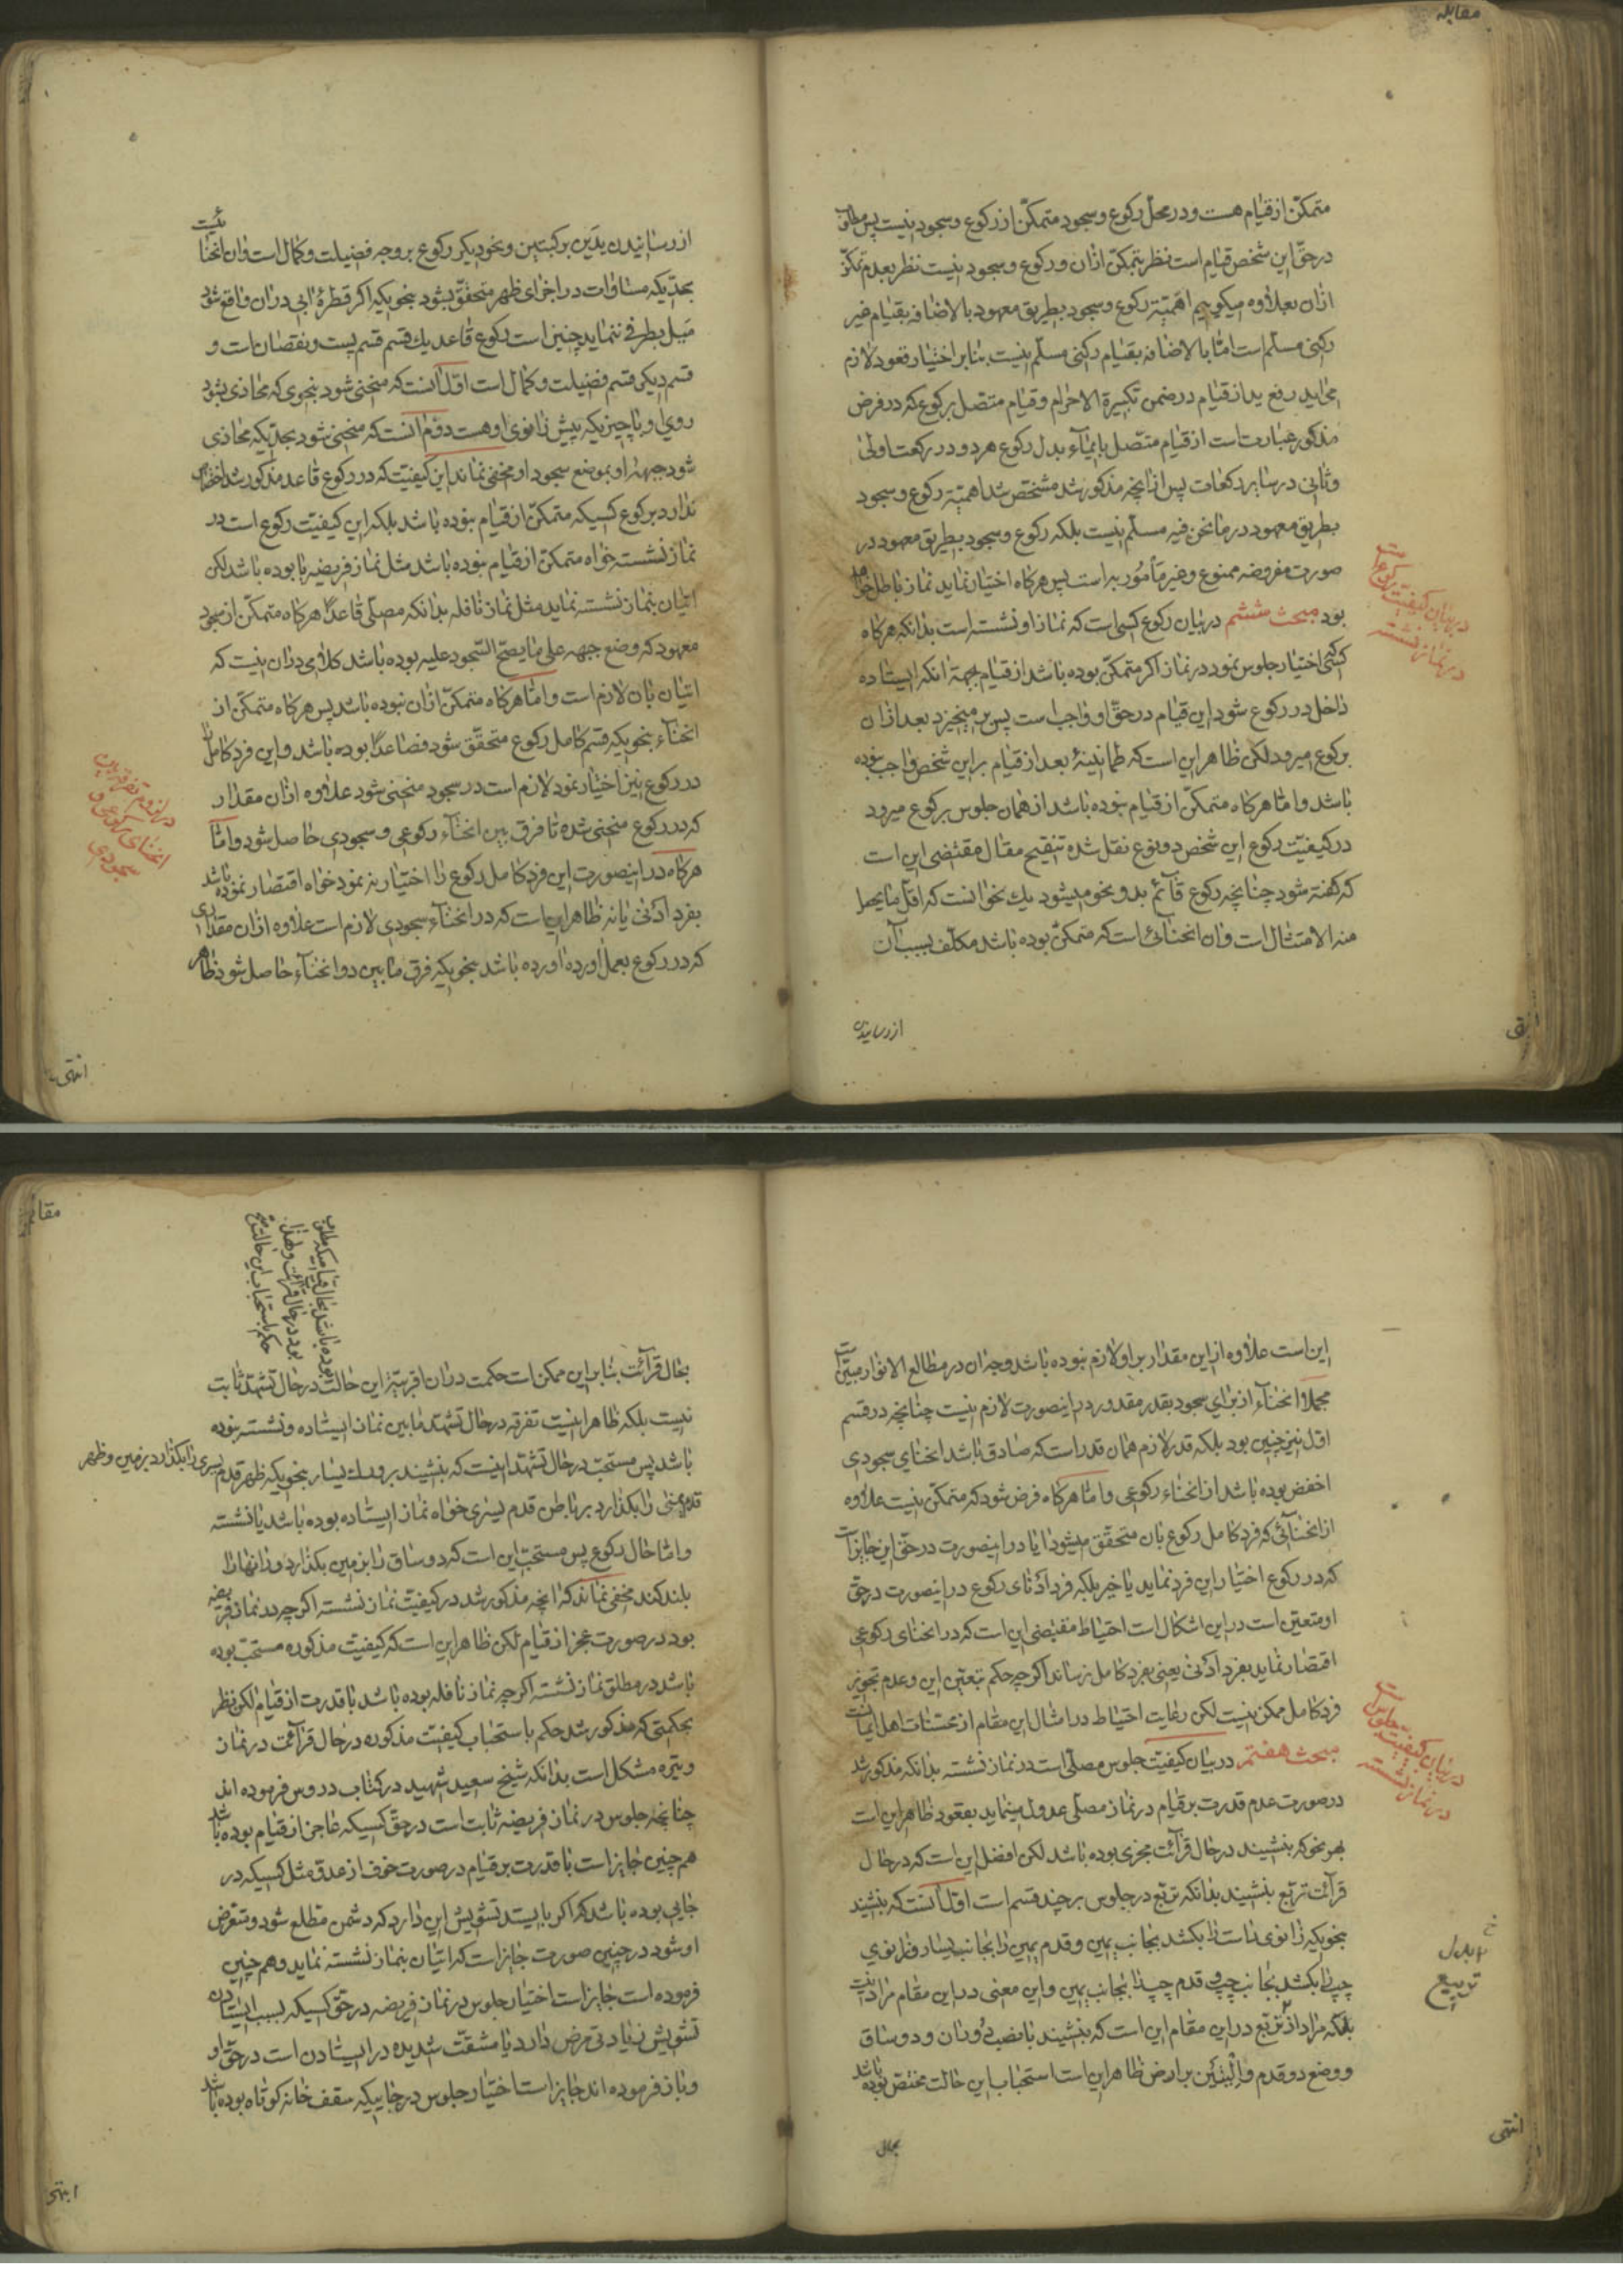 مقابله
متمکّن از قیام هست و در محلّ رکوع و سجود متمکّن از رکوع و سجود نیست پس مطلوب
در حقّ این شخص قیام است نظر بتمکّن ازان و رکوع و سجود نیست نظر بعدم تمکّن
ازان بعلاوه میگوییم اهمّیّة رکوع و سجود بطریق معهود بالاضافه بقیام غیر
رکنی مسلّم است امّا بالاضافه بقیام رکنی مسلّم نیست بنا بر اختیار قعود لازم
می‌اید رفع ید از قیام در ضمن تکبیرة الاحرام و قیام متصل برکوع که در فرض
مذکور عبارتست از قیام متّصل بایماء بدل رکوع هر دو در رکعت اولی
و ثانی در سایر رکعات پس از انچه مذکور شد مشخّص شد اهمیّة رکوع و سجود
بطریق معهود در ما نحن فیه مسلّم نیست بلکه رکوع و سجود بطریق معهود در
صورت مفروضه ممنوع و غیر مأمور به است پس هرکاه اختیار نماید نماز باطل خواهد
بود مبحث ششم در بیان رکوع کسی است که نماز او نشسته است بدانکه هرکاه
کسی اختیار جلوس نمود در نماز اکر متمکّن بوده باشد از قیام بجهة انکه ایستاده
داخل در رکوع شود این قیام در حقّ او واجب است پس برمیخیزد بعد ازان
برکوع میرود لکن ظاهر این است که طمانینهٔ بعد از قیام بر این شخص واجب نبوده
باشد و امّا هرکاه متمکّن از قیام نبوده باشد از همان جلوس برکوع میرود
در کیفیّت رکوع این شخص دو نوع نقل شده تنقیح مقال مقتضی این است
که کفته شود چنانچه رکوع قائم بدو نحو میشود یك نحو انست که اقلّ ما یحصل
منه الامتثال است و ان انحنائی است که متمکّن بوده باشد مکلّف بسبب آن
در بیان کیفیّت رکوع است
در نماز نشسته
از رسانیدن
از رسانیدن یدین برکبتین و نحو دیکر رکوع بر وجه فضیلت و کمال است و ان انحنائیست
بحدّیکه مساوات در اجزای ظهر متحقّق بشود بنحویکه اکر قطرهٔ ابی دران واقع شود
میل بطرفی ننماید چنین است رکوع قاعد یك قسم قسم پست و نقصان است و
قسم دیکر قسم فضیلت و کمال است اوّل انست که منحنی شود بنحوی که محاذی بشود
روی او با چیزیکه پیش زانوی او هست دوّم انست که منحنی شود بحدّیکه محاذی
شود جبههٔ او بموضع سجود او مخفی نماند این کیفیّت که در رکوع قاعد مذکور شد اختصاص
ندارد برکوع کسیکه متمکّن از قیام نبوده باشد بلکه این کیفیّت رکوع است در
نماز نشسته خواه متمکّن از قیام نبوده باشد مثل نماز فریضه یا بوده باشد لکن
اتیان بنماز نشسته نماید مثل نماز نافله بدانکه مصلّی قاعدًا هرکاه متمکّن از سجود
معهود که وضع جبهه علی ما یصحّ السّجود علیه بوده باشد کلامی دران نیست که
اتیان بان لازم است و امّا هرکاه متمکّن ازان نبوده باشد پس هرکاه متمکّن از
انحناء بنحویکه قسم کامل رکوع متحقّق شود فصاعدًا بوده باشد و این فرد کامل را
در رکوع نیز اختیار نمود لازم است در سجود منحنی شود علاوه ازان مقدار
که در رکوع منحنی شده تا فرق بین انحناء رکوعی و سجودی حاصل شود و امّا
هرکاه در اینصورت این فرد کامل رکوع را اختیار ننمود خواه اقتصار نموده باشد
بفرد ادنی یا نه ظاهر این است که در انحناء سجودی لازم است علاوه ازان مقداری
که در رکوع بعمل اورده اورده باشد بنحویکه فرق ما بین دو انحناء حاصل شود ظاهر
در لزوم تفرقه بین
انحنای رکوعی و
سجودی
انتهی
این است علاوه از این مقدار بر او لازم نبوده باشد وجه ان در مطالع الانوار مبیّن است
مجملا انحناء از برای سجود بقدر مقدور در اینصورت لازم نیست چنانچه در قسم
اوّل نیز چنین بود بلکه قدر لازم همان قدر است که صادق باشد انحنای سجودی
اخفض بوده باشد از انحناء رکوعی و امّا هرکاه فرض شود که متمکّن نیست علاوه
از انحنائی که فرد کامل رکوع بان متحقّق میشود ایا در اینصورت در حقّ این جایز است
که در رکوع اختیار این فرد نماید یا خیر بلکه فرد ادنای رکوع در اینصورت در حقّ
او متعیّن است در این اشکال است احتیاط مقتضی این است که در انحنای رکوعی
اقتصار نماید بفرد ادنی یعنی بفرد کامل نرساند اکرچه حکم بتعیّن این و عدم تجویز
فرد کامل ممکن نیست لکن رعایت احتیاط در امثال این مقام از محسّنات اهل ایمانست
مبحث هفتم در بیان کیفیّت جلوس مصلّی است در نماز نشسته بدانکه مذکور شد
در صورت عدم قدرت بر قیام در نماز مصلّی عدول مینماید بقعود ظاهر این است
بهر نحو که بنشیند در حال قرائت مجزی بوده باشد لکن افضل این است که در حال
قرائت تربّع بنشیند بدانکه تربّع در جلوس بر چند قسم است اوّل انست که بنشیند
بنحویکه زانوی راست را بکشد بجانب یمین و قدم یمین را بجانب یسار و زانوی
چپ را بکشد بجانب چپ و قدم چپ را بجانب یمین و این معنی در این مقام مراد نیست
بلکه مراد از تربّع در این مقام این است که بنشیند با نصب دو ران و دو ساق
و وضع دو قدم و الیتین بر ارض ظاهر این است استحباب این حالت مختصّ بوده باشد
در بیان کیفیّت جلوس است
در نماز نشسته
تربیع
بحال
انتهی
بحال قرائت بنا بر این ممکن است حکمت دران اقربیّة این حالت در حال تشهّد ثابت
نیست بلکه ظاهر اینست تفرقه در حال تشهّد ما بین نماز ایستاده و نشسته نبوده
باشد پس مستحبّ در حال تشهّد اینست که بنشیند بر ورك یسار بنحویکه ظهر قدم یسری را بکذارد بر زمین و ظهر
قدم یمنی را بکذارد بر باطن قدم یسری خواه نماز ایستاده بوده باشد یا نشسته
و امّا حال رکوع پس مستحبّ این است که دو ساق را بزمین بکذارد و رانها را
بلند کند مخفی نماند که انچه مذکور شد در کیفیّت نماز نشسته اکرچه در نماز فریضه
بود در صورت عجز از قیام لکن ظاهر این است که کیفیّت مذکوره مستحبّ بوده
باشد در مطلق نماز نشسته اکرچه نماز نافله بوده باشد با قدرت از قیام لکن نظر
بحکمتی که مذکور شد حکم باستحباب کیفیّت مذکوره در حال قرائت در نماز
وتیره مشکل است بدانکه شیخ سعید شهید در کتاب دروس فرموده اند
چنانچه جلوس در نماز فریضه ثابت است در حقّ کسیکه عاجز از قیام بوده باشد
هم چنین جایز است با قدرت بر قیام در صورت خوف از عدو مثل کسیکه در
جایی بوده باشد که اکر بایستد تشویش این دارد که دشمن مطلع شود و متعرّض
او شود در چنین صورت جایز است که اتیان بنماز نشسته نماید و هم چنین
فرموده است جایز است اختیار جلوس در نماز فریضه در حقّ کسیکه بسبب ایستادن
تشویش زیادتی مرض دارد یا مشقّت شدیده در ایستادن است در حقّ او
و باز فرموده اند جایز است اختیار جلوس در جاییکه سقف خانه کوتاه بوده باشد
مقابله